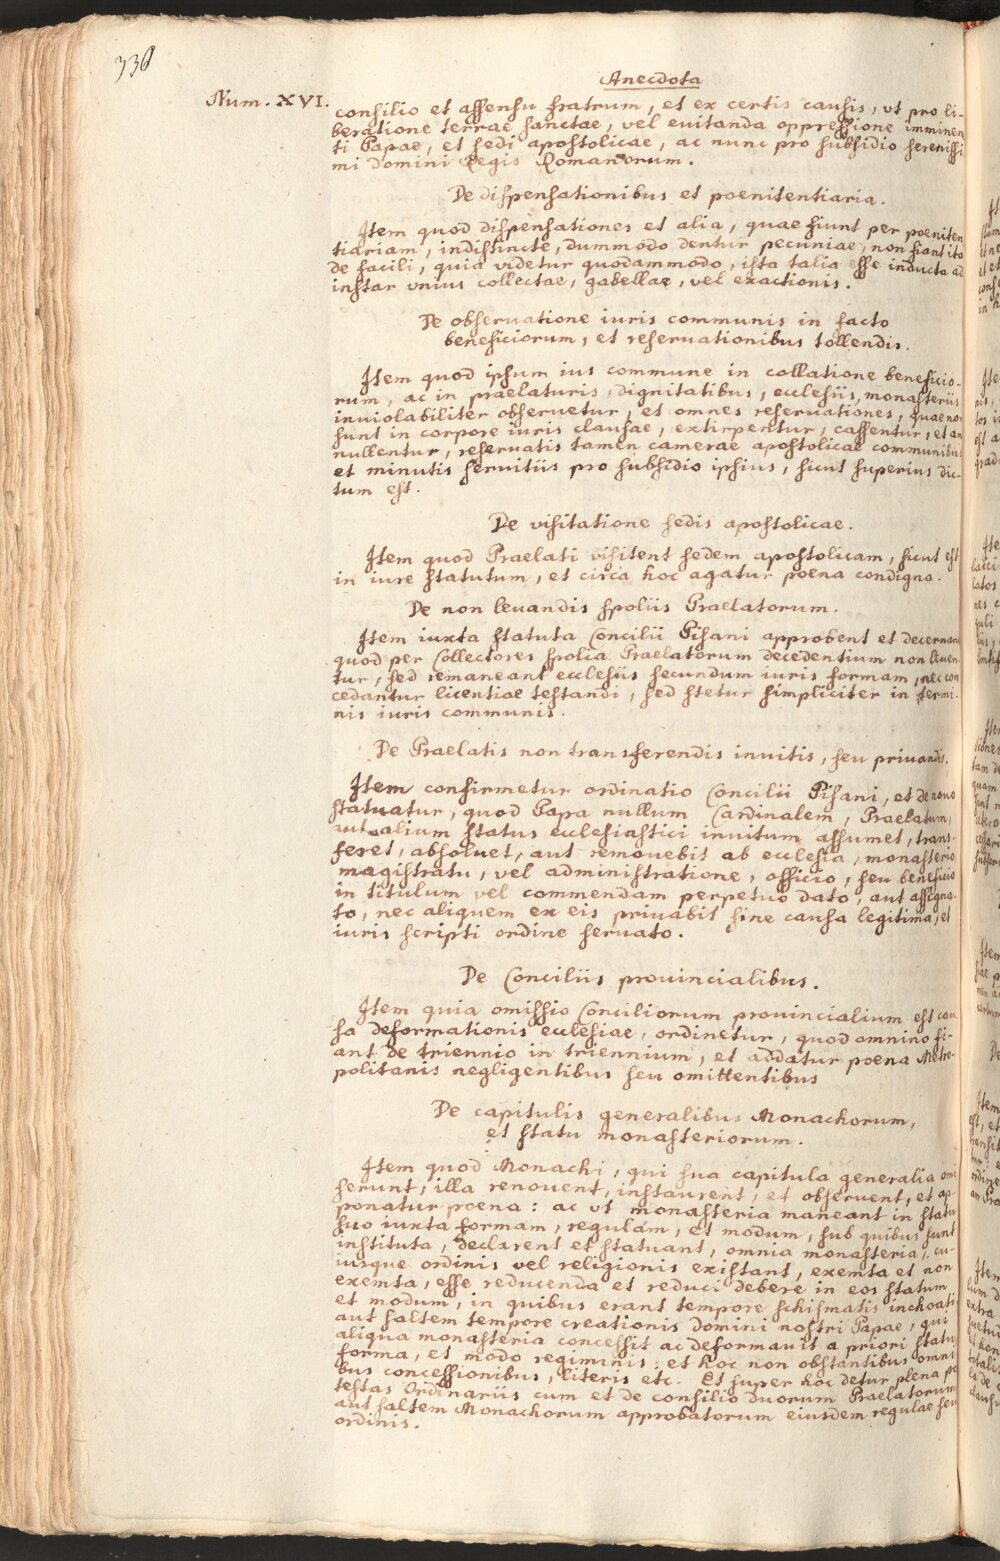 336
Anecdota
Num. XVI.
consilio et assensu fratrum, et ex certis causis, vt pro li-
beratione terrae sanctae, vel euitanda oppressione imminen
ti Papae, et sedi apostolicae, ac nunc pro subsidio serenissi
mi domini Regis Romanorum.
De dispensationibus et poenitentiaria.
Item quod dispensationes et alia, quae fiunt per poeniten
tiariam, indistincte, dummodo dentur pecuniae, non fiant ita
de facili, quia videtur quodammodo, ista talia esse inducta ad
instar vnius collectae, gabellae, vel exactionis.
De obseruatione iuris communis in facto
beneficiorum, et reseruationibus tollendis.
Item quod ipsum ius commune in collatione beneficio-
rum, ac in praelaturis, dignitatibus, ecclesiis, monasteriis
inuiolabiliter obseruetur, et omnes reseruationes, quae non
sunt in corpore iuris clausae, extirpentur, cassentur, et an
nullentur, reseruatis tamen camerae apostolicae communibus
et minutis seruitiis pro subsidio ipsius, sicut superius dic-
tum est.
De visitatione sedis apostolicae.
Item quod Praelati visitent sedem apostolicam, sicut est
in iure statutum, et circa hoc agatur poena condigna.
De non leuandis spoliis Praelatorum.
Item iuxta statuta Concilii Pisani approbent et decernant
quod per Collectores spolia Praelatorum decedentium non leuen-
tur, sed remaneant ecclesiis secundum iuris formam, nec con
cedantur licentiae testandi, sed stetur simpliciter in termi-
nis iuris communis.
De Praelatis non transferendis inuitis, seu priuandis.
Item confirmetur ordinatio Concilii Pisani, et de nouo
statuatur, quod Papa nullum Cardinalem, Praelatum,
aut alium status ecclesiastici inuitum assumet, trans-
feret, absoluet, aut remouebit ab ecclesia, monasterio
magistratu, vel administratione, officio, seu beneficio
in titulum vel commendam perpetuo dato, aut assigna-
to, nec aliquem ex eis priuabit sine causa legitima, et
iuris scripti ordine seruato.
De Conciliis prouincialibus.
Item quia omissio Conciliorum prouincialium est cau
sa deformationis ecclesiae, ordinetur, quod omnino fi-
ant de triennio in triennium, et addatur poena Metro-
politanis negligentibus seu omittentibus
De capitulis generalibus Monachorum,
et statu monasteriorum.
Item quod Monachi, qui sua capitula generalia omi
serunt, illa renouent, instaurent, et obseruent, et ap-
ponatur poena: ac vt monasteria maneant in statu
suo iuxta formam, regulam, et modum, sub quibus sunt
instituta, declarent et statuant, omnia monasteria, cu-
iusque ordinis vel religionis existant, exemta et non
exemta, esse reducenda et reduci debere in eos statum
et modum, in quibus erant tempore schismatis inchoati
aut saltem tempore creationis domini nostri Papae, qui
aliqua monasteria concessit ac deformauit a priori statu,
forma, et modo regiminis: et hoc non obstantibus omni
bus concessionibus, literis etc. Et super hoc detur plena po
testas Ordinariis cum et de consilio duorum Praelatorum
aut saltem Monachorum approbatorum eiusdem regulae seu
ordinis.